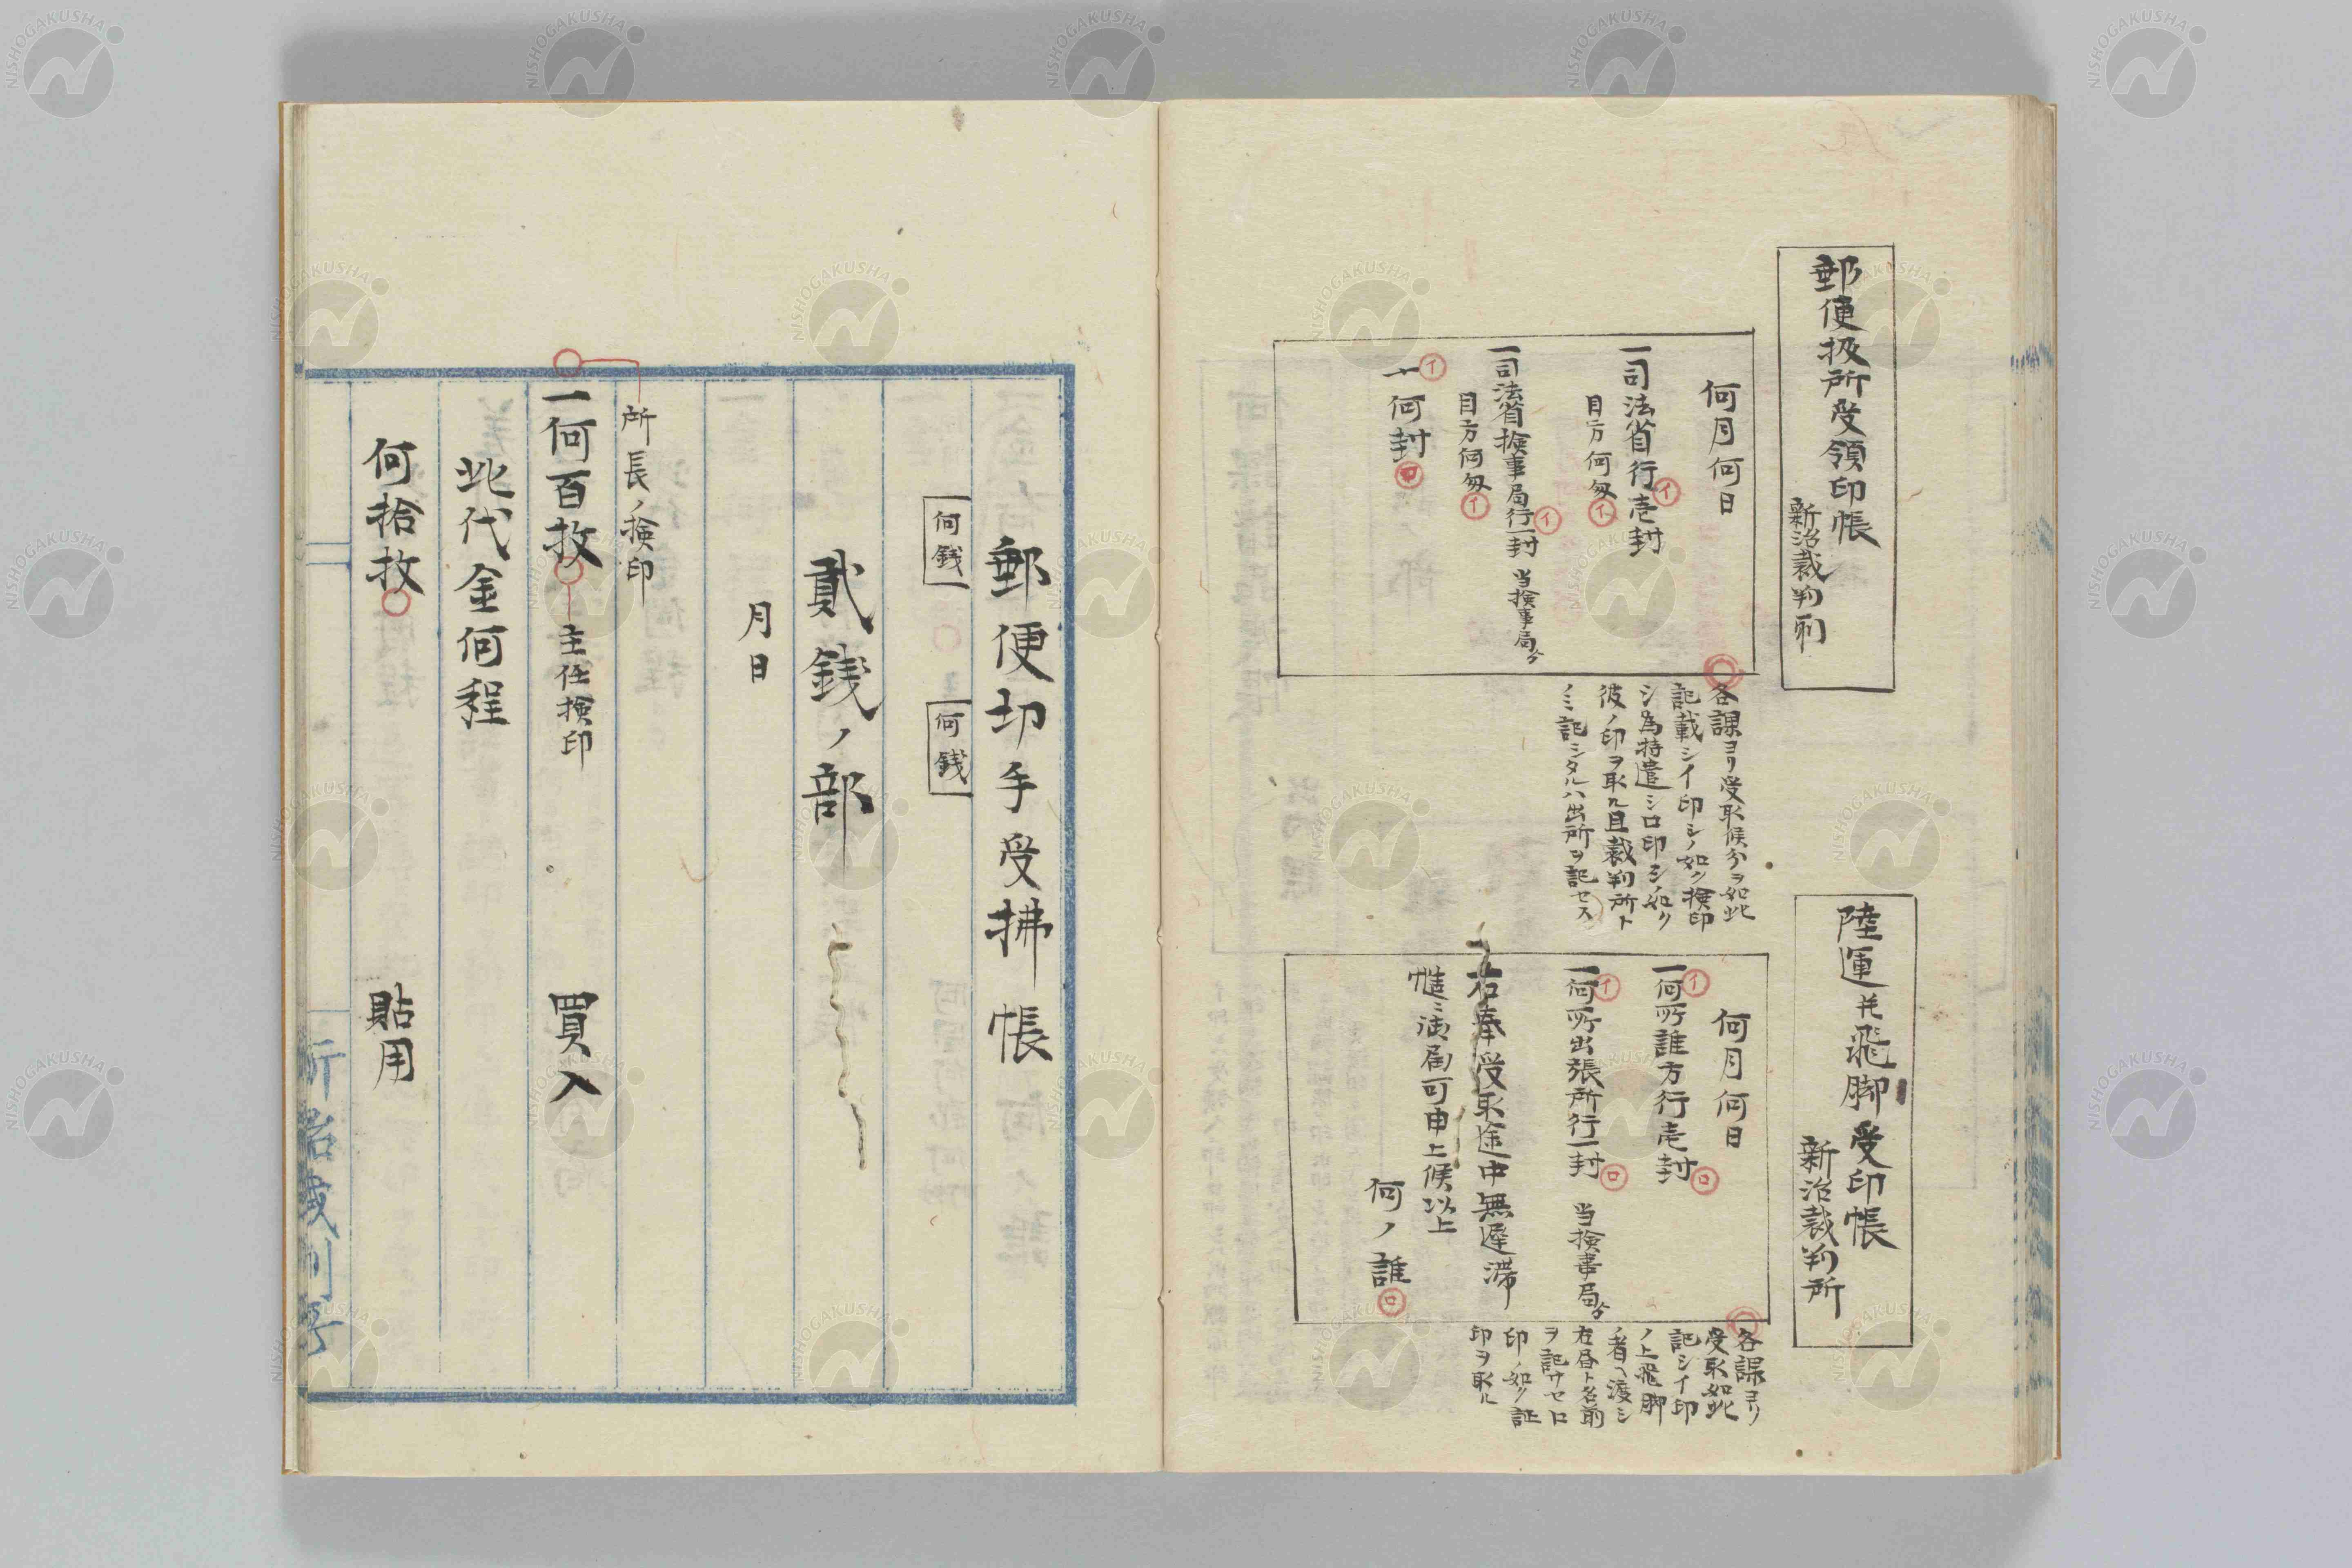 郵便扱所受領印帳
新治裁判所
何月何日
一司法省行壱封
目方何匁
一司法省検事局行一封 当検事局ゟ
目方何匁
一何封
各課ヨリ受取候分ヲ如此
記載シイ印シノ如ク検印
シ為持遣シロ印シノ如ク
彼ノ印ヲ取ル且裁判所ト
ノミ記シタルハ出所ヲ記セス
陸運并飛脚受印帳
新治裁判所
何月何日
一何所誰方行壱封
一何所出張所行一封 当検事局ゟ
右奉受取途中無遅滞
慥ニ溝届可申上候以上
何ノ誰
各課ヨリ
受取如此
記シイ印
ノ上飛脚
ノ者ヘ渡シ
右届ト名前
ヲ記サセロ
印ノ如ク証
印ヲ取ル
郵便切手受拂帳
何銭 何銭
貳銭ノ部
月日
所長ノ検印
一何百枚 主任検印 買入
此代金何程
何拾枚 貼用
新治裁判所
NISHOGAKUSHA